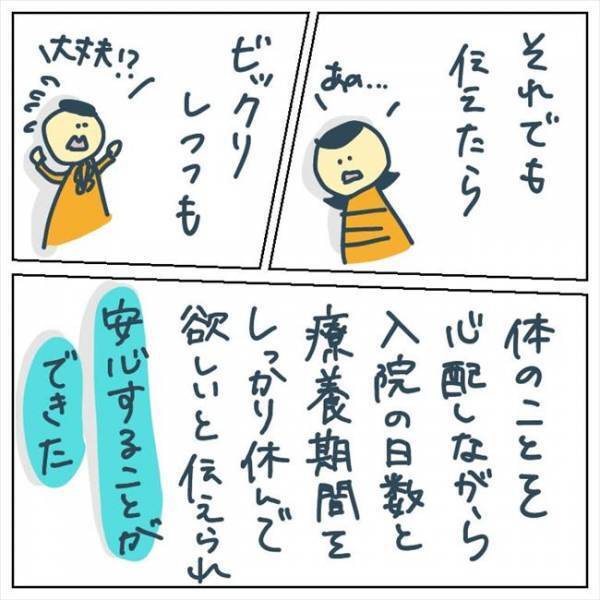 それでも
伝えたら
あの…
ビックリ
しつつも
大丈夫!?
体のことを
心配しながら
入院の日数と
療養期間を
しっかり休んで
欲しいと伝えられ
安心することが
できた